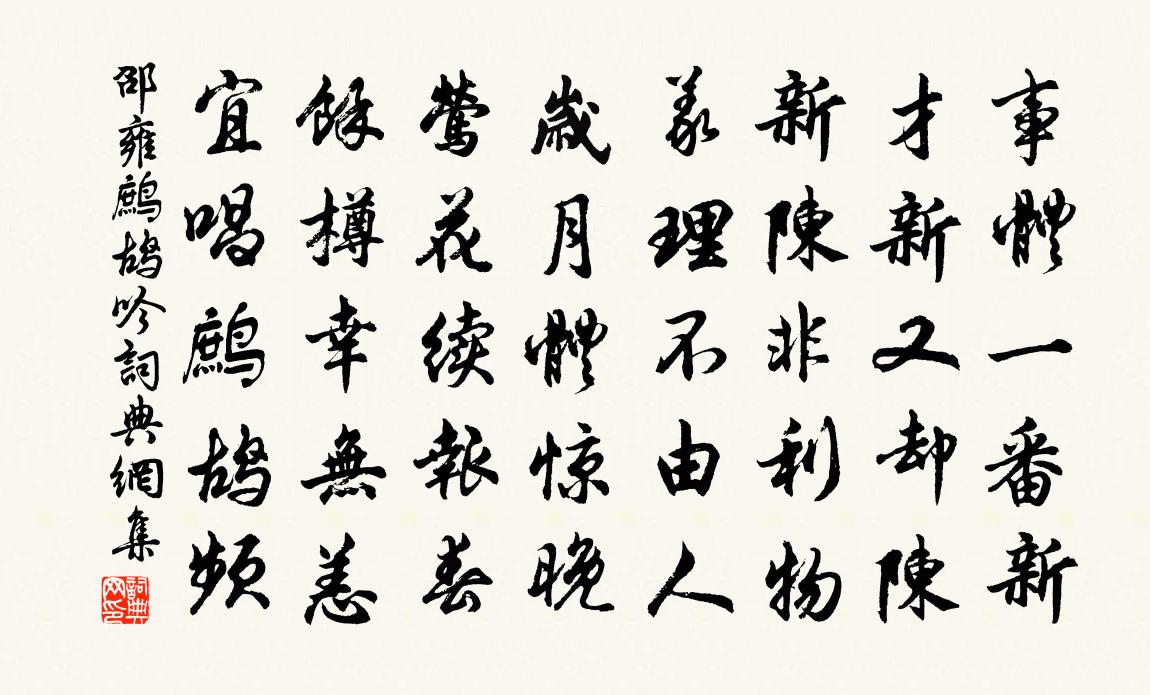 事體一番新
才新又却陳
新陳非利物
義理不由人
歲月體惊晚
鶯花续報春
餘樽幸無恙
宜唱鷓鴣頻
邵雍鷓鴣吟詞典網集
詞典网印